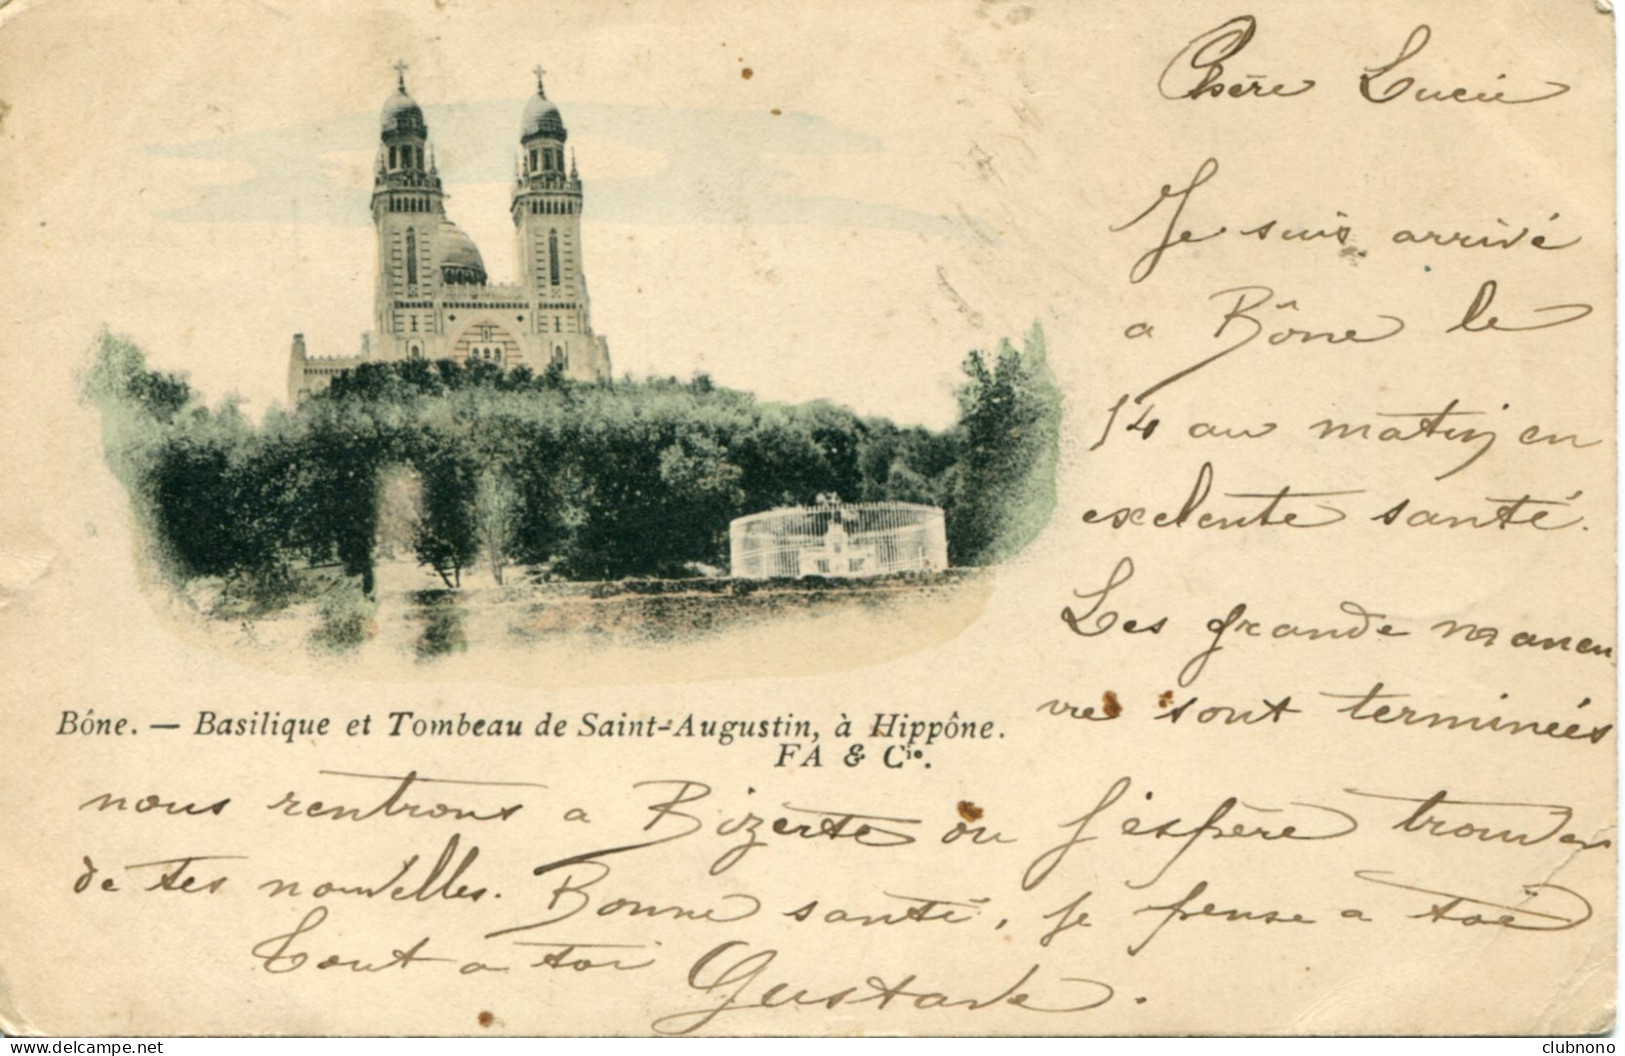 Chère Lucie
Je suis arrivé
a Bône le
14 au matin en
exelente santé.
Les grande maneu
vres sont terminées
Bône. — Basilique et Tombeau de Saint-Augustin, à Hippône.
FA & Cie.
nous rentrons a Bizerte ou j'espère trouver
de tes nouvelles. Bonne santé, je pense a toi
Tout a toi Gustave.
www.delcampe.net
clubnono